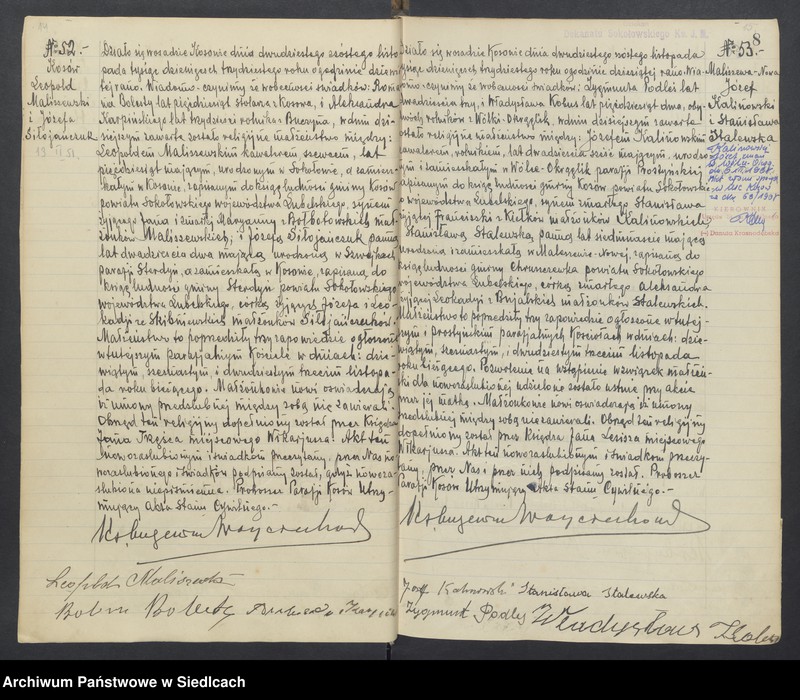 № 52.-
Kosów
Leopold
Maliszewski
i Józefa
Siłojańczuk
Działo się w osadzie Kosowie dnia dwudziestego szóstego listo
pada tysiąc dziewięćset trzydziestego roku o godzinie dziewią
tej rano. Wiadomo czynimy że w obecności świadków:
Bolesty lat pięćdziesiąt stolarza z Kosowa, i Aleksandra
Karpińskiego lat trzydzieści rolnika z Buczyna, w dniu dzi-
siejszym zawarte zostało religijne małżeństwo między:
Leopoldem Maliszewskim kawalerem szewcem, lat
pięćdziesiąt mającym, urodzonym w Sokołowie, a zamiesz-
kałym w Kosowie, zapisanym do ksiąg ludności gminy Kosów
powiatu Sokołowskiego województwa Lubelskiego, synem
żyjącego Jana i zmarłej Marjanny z mał
żonków Maliszewskich; i Józefą Siłojańczuk panną
lat dwadzieścia dwa mającą urodzoną w
parafji Sterdyń, a zamieszkałą w Kosowie, zapisaną do
ksiąg ludności gminy Sterdyń powiatu Sokołowskiego
województwa Lubelskiego, córką żyjących Józefa i Leo
kadji ze Skibniewskich małżonków Siłojańczuków.
Małżeństwo to poprzedziły trzy zapowiedzie ogłoszone
w tutejszym parafjalnym Kościele w dniach: dzie-
wiątym, szesnastym, i dwudziestym trzecim listopa-
da roku bieżącego. Małżonkowie nowi oświadczają
iż umowy przedślubnej między sobą nie zawierali.
Obrzęd ten religijny dopełniony został przez Księdza
Jana miejscowego Wikarjusza. Akt ten
nowozaślubionym i świadkom przeczytany, przez Nas no
wozaślubionego i świadków podpisany został, gdyż nowoza-
ślubiona niepiśmienna. Proboszcz Parafji Kosów Utrzy-
mujący Akta Stanu Cywilnego.-
Leopold Maliszewski
№ 53.
Maliszewa-Nowa
Józef
Kalinowski
i Stanisława
Stalewska
Działo się w osadzie Kosowie dnia dwudziestego szóstego listopada
tysiąc dziewięćset trzydziestego roku o godzinie dziesiątej rano. Wia-
domo czynimy że w obecności świadków: Zygmunta Podleś lat
dwadzieścia trzy, i Władysława Kobus lat pięćdziesiąt dwa, oby-
dwóch rolników z Wólki-Okrąglik, w dniu dzisiejszym zawarte
zostało religijne małżeństwo między: Józefem Kalinowskim
kawalerem, rolnikiem, lat dwadzieścia sześć mającym, urodzo
nym i zamieszkałym w Wólce-Okrąglik parafji Prostyńskiej
zapisanym do ksiąg ludności gminy Kosów powiatu Sokołowskie
go województwa Lubelskiego, synem zmarłego Stanisława
i żyjącej Franciszki z Kiełków małżonków Kalinowskich;
i Stanisławą Stalewską panną lat siedemnaście mającą
urodzoną i zamieszkałą w Maliszewie-Nowej, zapisaną do
ksiąg ludności gminy Chruszczewka powiatu Sokołowskiego
województwa Lubelskiego, córką zmarłego Aleksandra
i żyjącej Leokadji z małżonków Stalewskich.
Małżeństwo to poprzedziły trzy zapowiedzie ogłoszone w tutej-
szym i Prostyńskim parafjalnych Kościołach w dniach: dzie-
wiątym, szesnastym, i dwudziestym trzecim listopada
roku bieżącego. Pozwolenie na wstąpienie w związek małżeń-
ski dla nowozaślubionej udzielone zostało ustnie przy akcie
przez jej matkę. Małżonkowie nowi oświadczają iż umowy
przedślubnej między sobą nie zawierali. Obrzęd ten religijny
dopełniony został przez Księdza Jana miejscowego
Wikarjusza. Akt ten nowozaślubionym i świadkom przeczy-
tany, przez Nas i przez nich podpisany został. Proboszcz
Parafji Kosów Utrzymujący Akta Stanu Cywilnego.-
Józef Kalinowski Stanisława Stalewska
Zygmunt Podleś Władysław Kobus
Archiwum Państwowe w Siedlcach